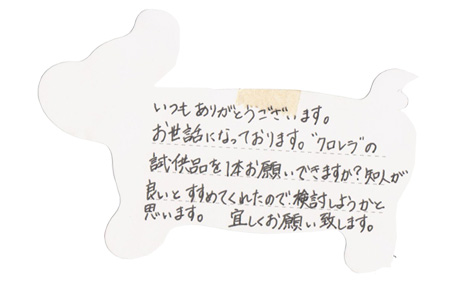 いつもありがとうございます。
お世話になっております。"クロレラ"の
試供品を1本お願いできますか?知人が
良いとすすめてくれたので検討しようかと
思います。 宜しくお願い致します。